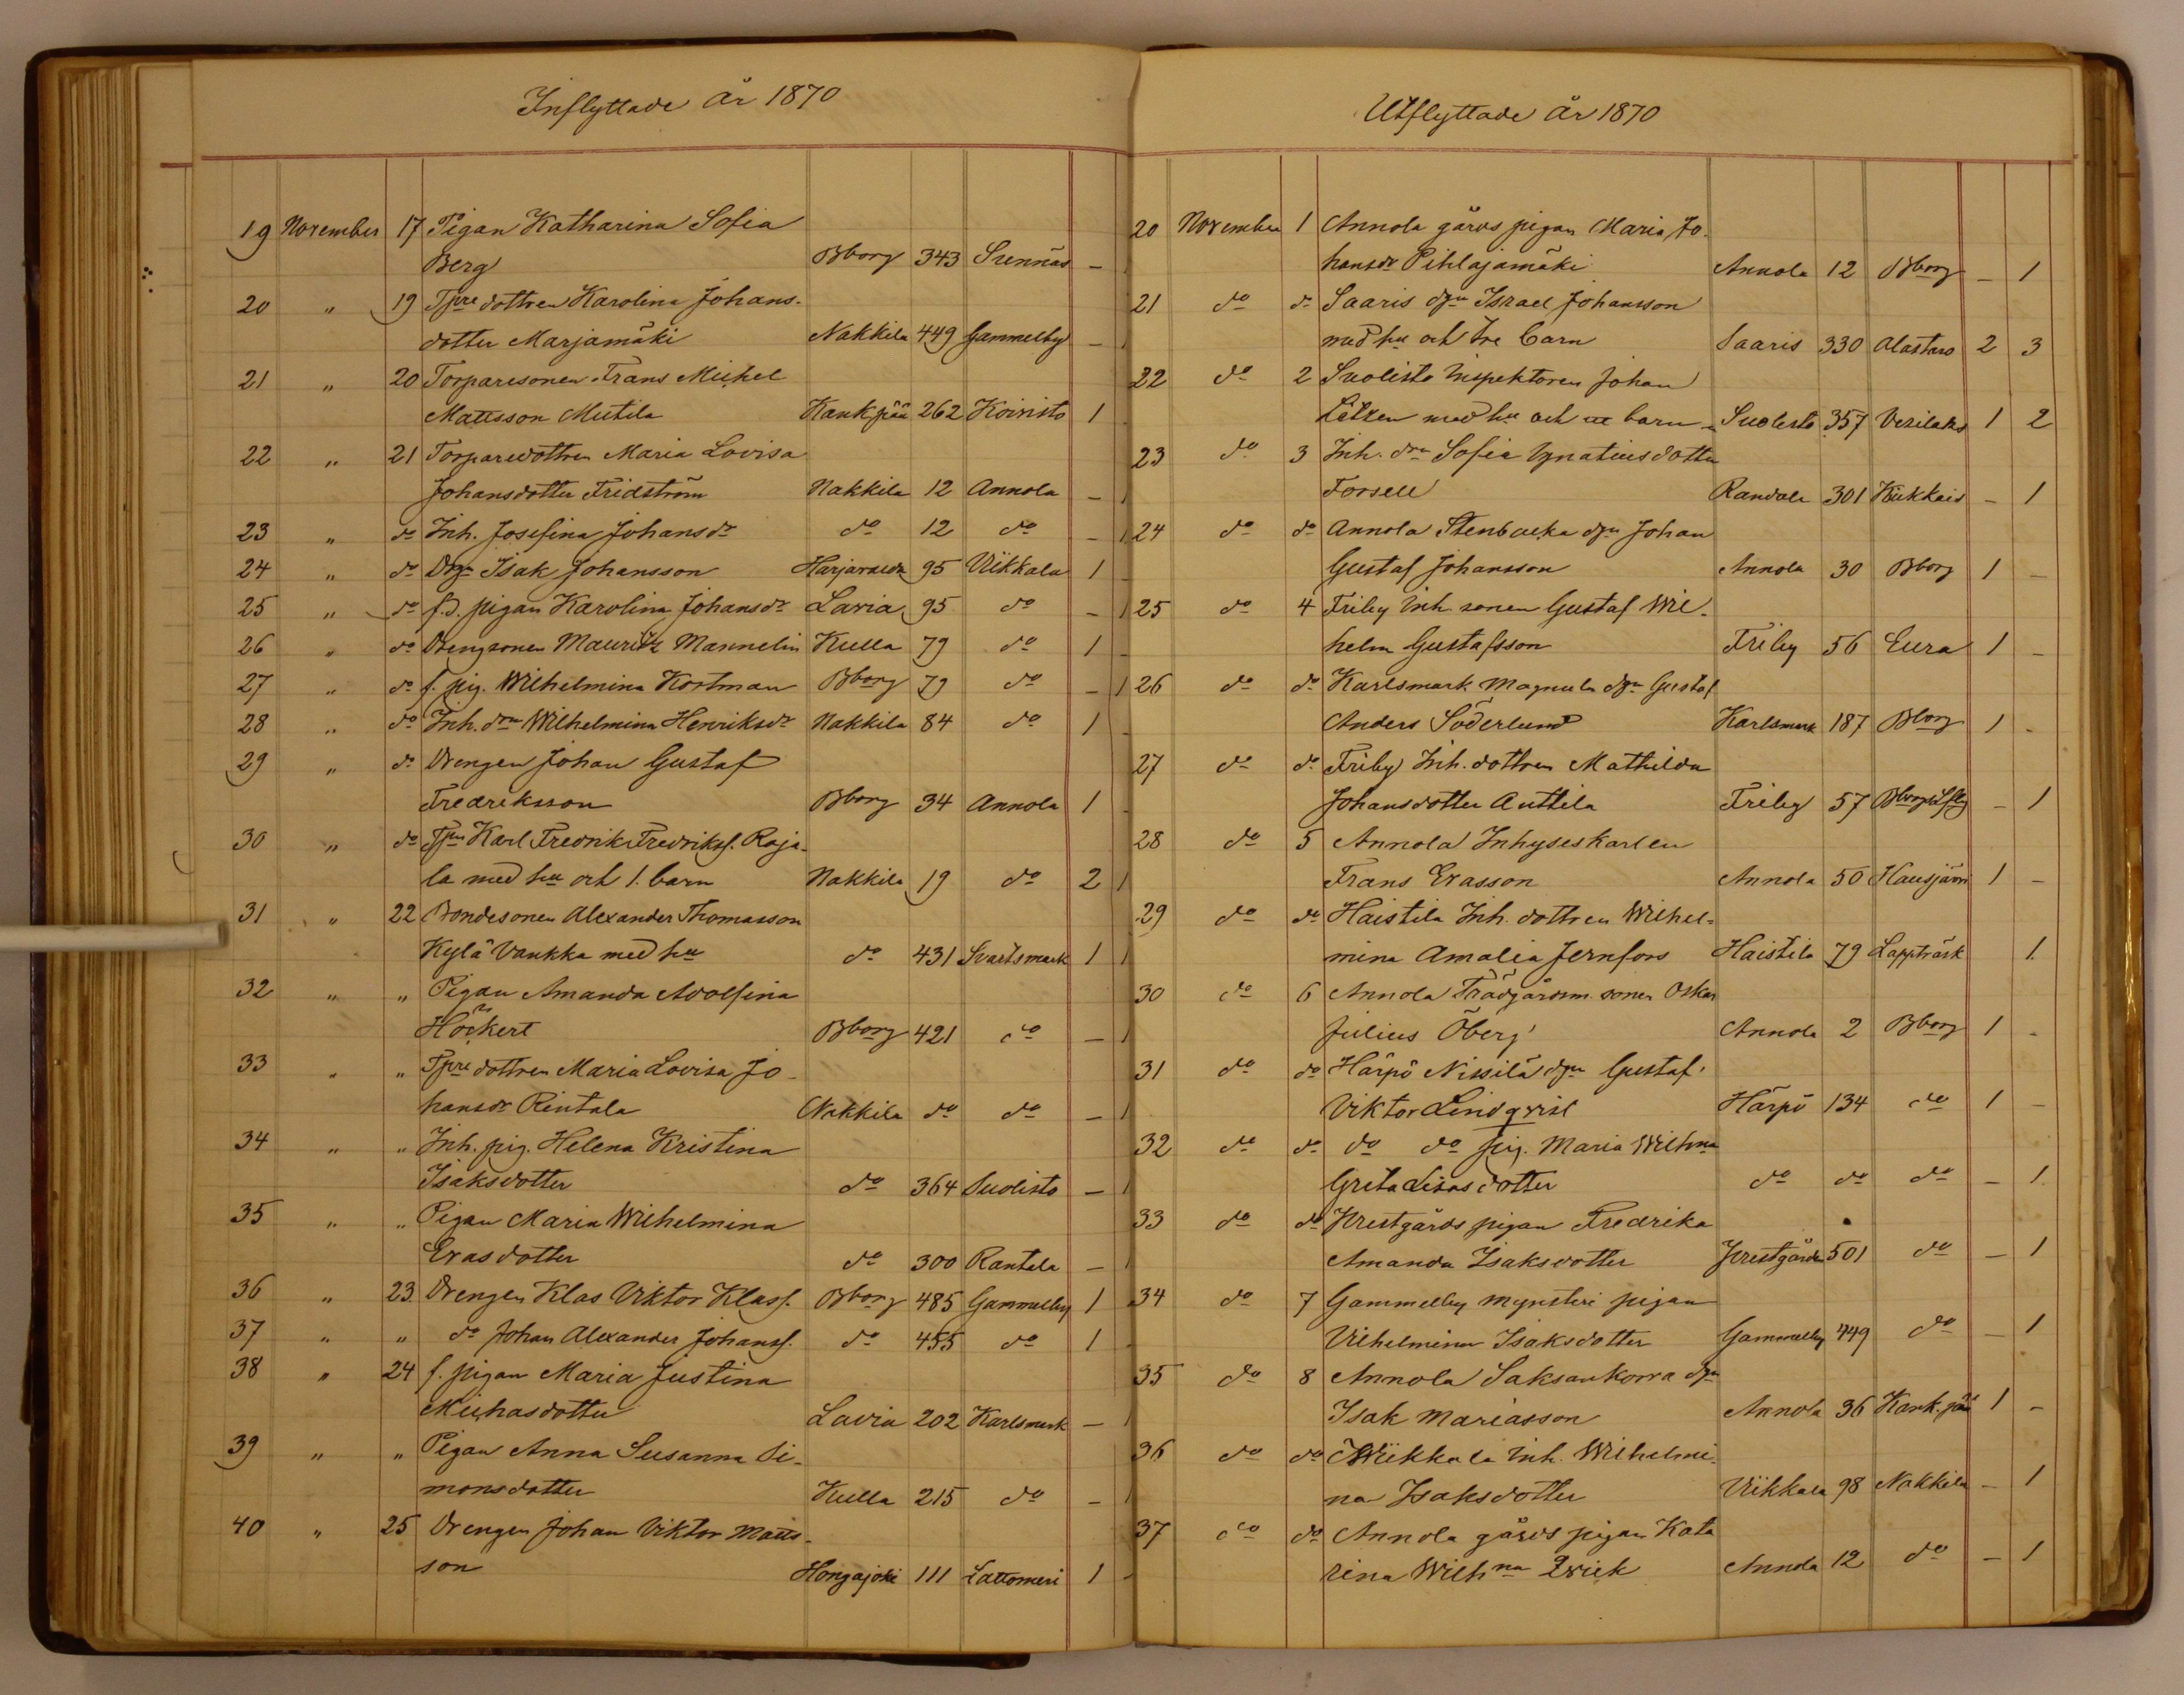 Inflyttade år 1870
19 November 17 Pigan Katharina Sofia
Berg Bborg 343 Sunnäs – 1
20 " 19 Tpre dottren Karolina Johans-
dotter Marjamäki Nakkila 449 Gammelby – 1
21 " 20 Torparesonen Frans Michel
Mattsson Mutila Kankpää 262 Koivisto 1
22 " 21 Torparedottren Maria Lovisa
Johansdotter Fridström Nakkila 12 Annola – 1
23 " do Inh. Josefina Johansdr do 12 do – 1
24 " do Drg Isak Johansson Harjavalda 95 Viikkala 1 –
25 " do f.d. pigan Karolina Johansdr Lavia 95 do – 1
26 " do Drengsonen Mauritz Mannelin Kulla 79 do 1 –
27 " do f. pig. Wilhelmina Kortman Bborg 79 do – 1
28 " do Inh. drn Wilhelmina Henriksdr Nakkila 84 do 1 –
29 " do Drengen Johan Gustaf
Fredriksson Bborg 34 Annola 1 –
30 " do Tpn Karl Fredrik Fredrikss. Raja-
la med hu och 1. barn Nakkila 19 do 2 1
31 " 22 Bondesonen Alexander Thomasson
Kylä Vankka med hu do 431 Svartsmark 1 1
32 " " Pigan Amanda Adolfina
Höckert Bborg 421 do – 1
33 " " Tpre dottren Maria Lovisa Jo-
hansdr Rintala Nakkila do do – 1
34 " " Inh. pig. Helena Kristina
Isaksdotter do 364 Suolisto – 1
35 " " Pigan Maria Wilhelmina
Erasdotter do 300 Rantala – 1
36 " 23 Drengen Klas Viktor Klass. Bborg 485 Gammelby 1
37 " " do Johan Alexander Johanss. do 455 do 1 –
38 " 24 f. pigan Maria Justina
Michasdotter Lavia 202 Karlsmark – 1
39 " " Pigan Anna Susanna Si-
monsdotter Kulla 215 do – 1
40 " 25 Drengen Johan Viktor Matts-
son Hongajoki 111 Lattomeri 1 –
Utflyttade år 1870
20 November 1 Annola gårds pigan Maria Jo-
hansdr Pihlajamäki Annola 12 Bborg – 1
21 do do Saaris dgn Israel Johansson
med hu och tre barn Saaris 330 Alastaro 2 3
22 do 2 Suolisto Inspektoren Johan
med hu och barn Suolisto 357 Vesilaks 1 2
23 do 3 Inh. drn Sofia Ignatiusdotter
Forsell Randala 301 Kiukkais – 1
24 do do Annola Stenbacka dgn Johan
Gustaf Johansson Annola 30 Bborg 1 –
25 do 4 Friby Inh. sonen Gustaf Wil-
helm Gustafsson Friby 56 Eura 1 –
26 do do Karlsmark Magnula dgn Gustaf
Anders Söderlund Karlsmark 187 Bborg 1 –
27 do do Friby Inh. dottren Mathilda
Johansdotter Anttila Friby 57 Bborg – 1
28 do 5 Annola Inhyseskarlen
Frans Erasson Annola 50 Hausjärvi 1 –
29 do do Haistila Inh. dottren Wilhel-
mina Amalia Jernfors Haistila 79 Lappträsk 1
30 do 6 Annola Trädgårdsm. sonen Oskar
Julius Öberg Annola 2 Bborg 1 –
31 do do Härpö Nissilä dgn Gustaf
Viktor Lindqvist Härpö 134 do 1 –
32 do do do do pig. Maria Wilhna
Greta Lisasdotter do do do – 1
33 do do Prestgårds pigan Fredrika
Amanda Isaksdotter Prestgården 501 do – 1
34 do 7 Gammelby Mynsteri pigan
Vilhelmina Isaksdotter Gammelby 449 do – 1
35 do 8 Annola Saksankorva dgn
Isak Mariasson Annola 36 Kank.pää 1 –
36 do do Wiikkala Inh. Wilhelmi-
na Isaksdotter Viikkala 98 Nakkila – 1
37 do do Annola gårds pigan Kata
rina Wilhna Qvick Annola 12 do – 1